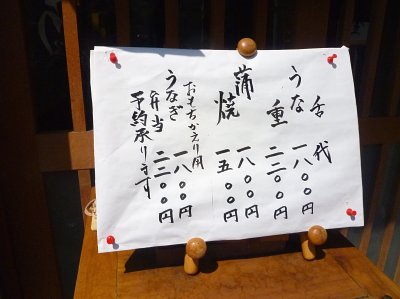 舌代
うな重
一八〇〇円
二二〇〇円
蒲焼
一八〇〇円
一五〇〇円
おもちかえり用
うなぎ弁当
一八〇〇円
二二〇〇円
予約承ります